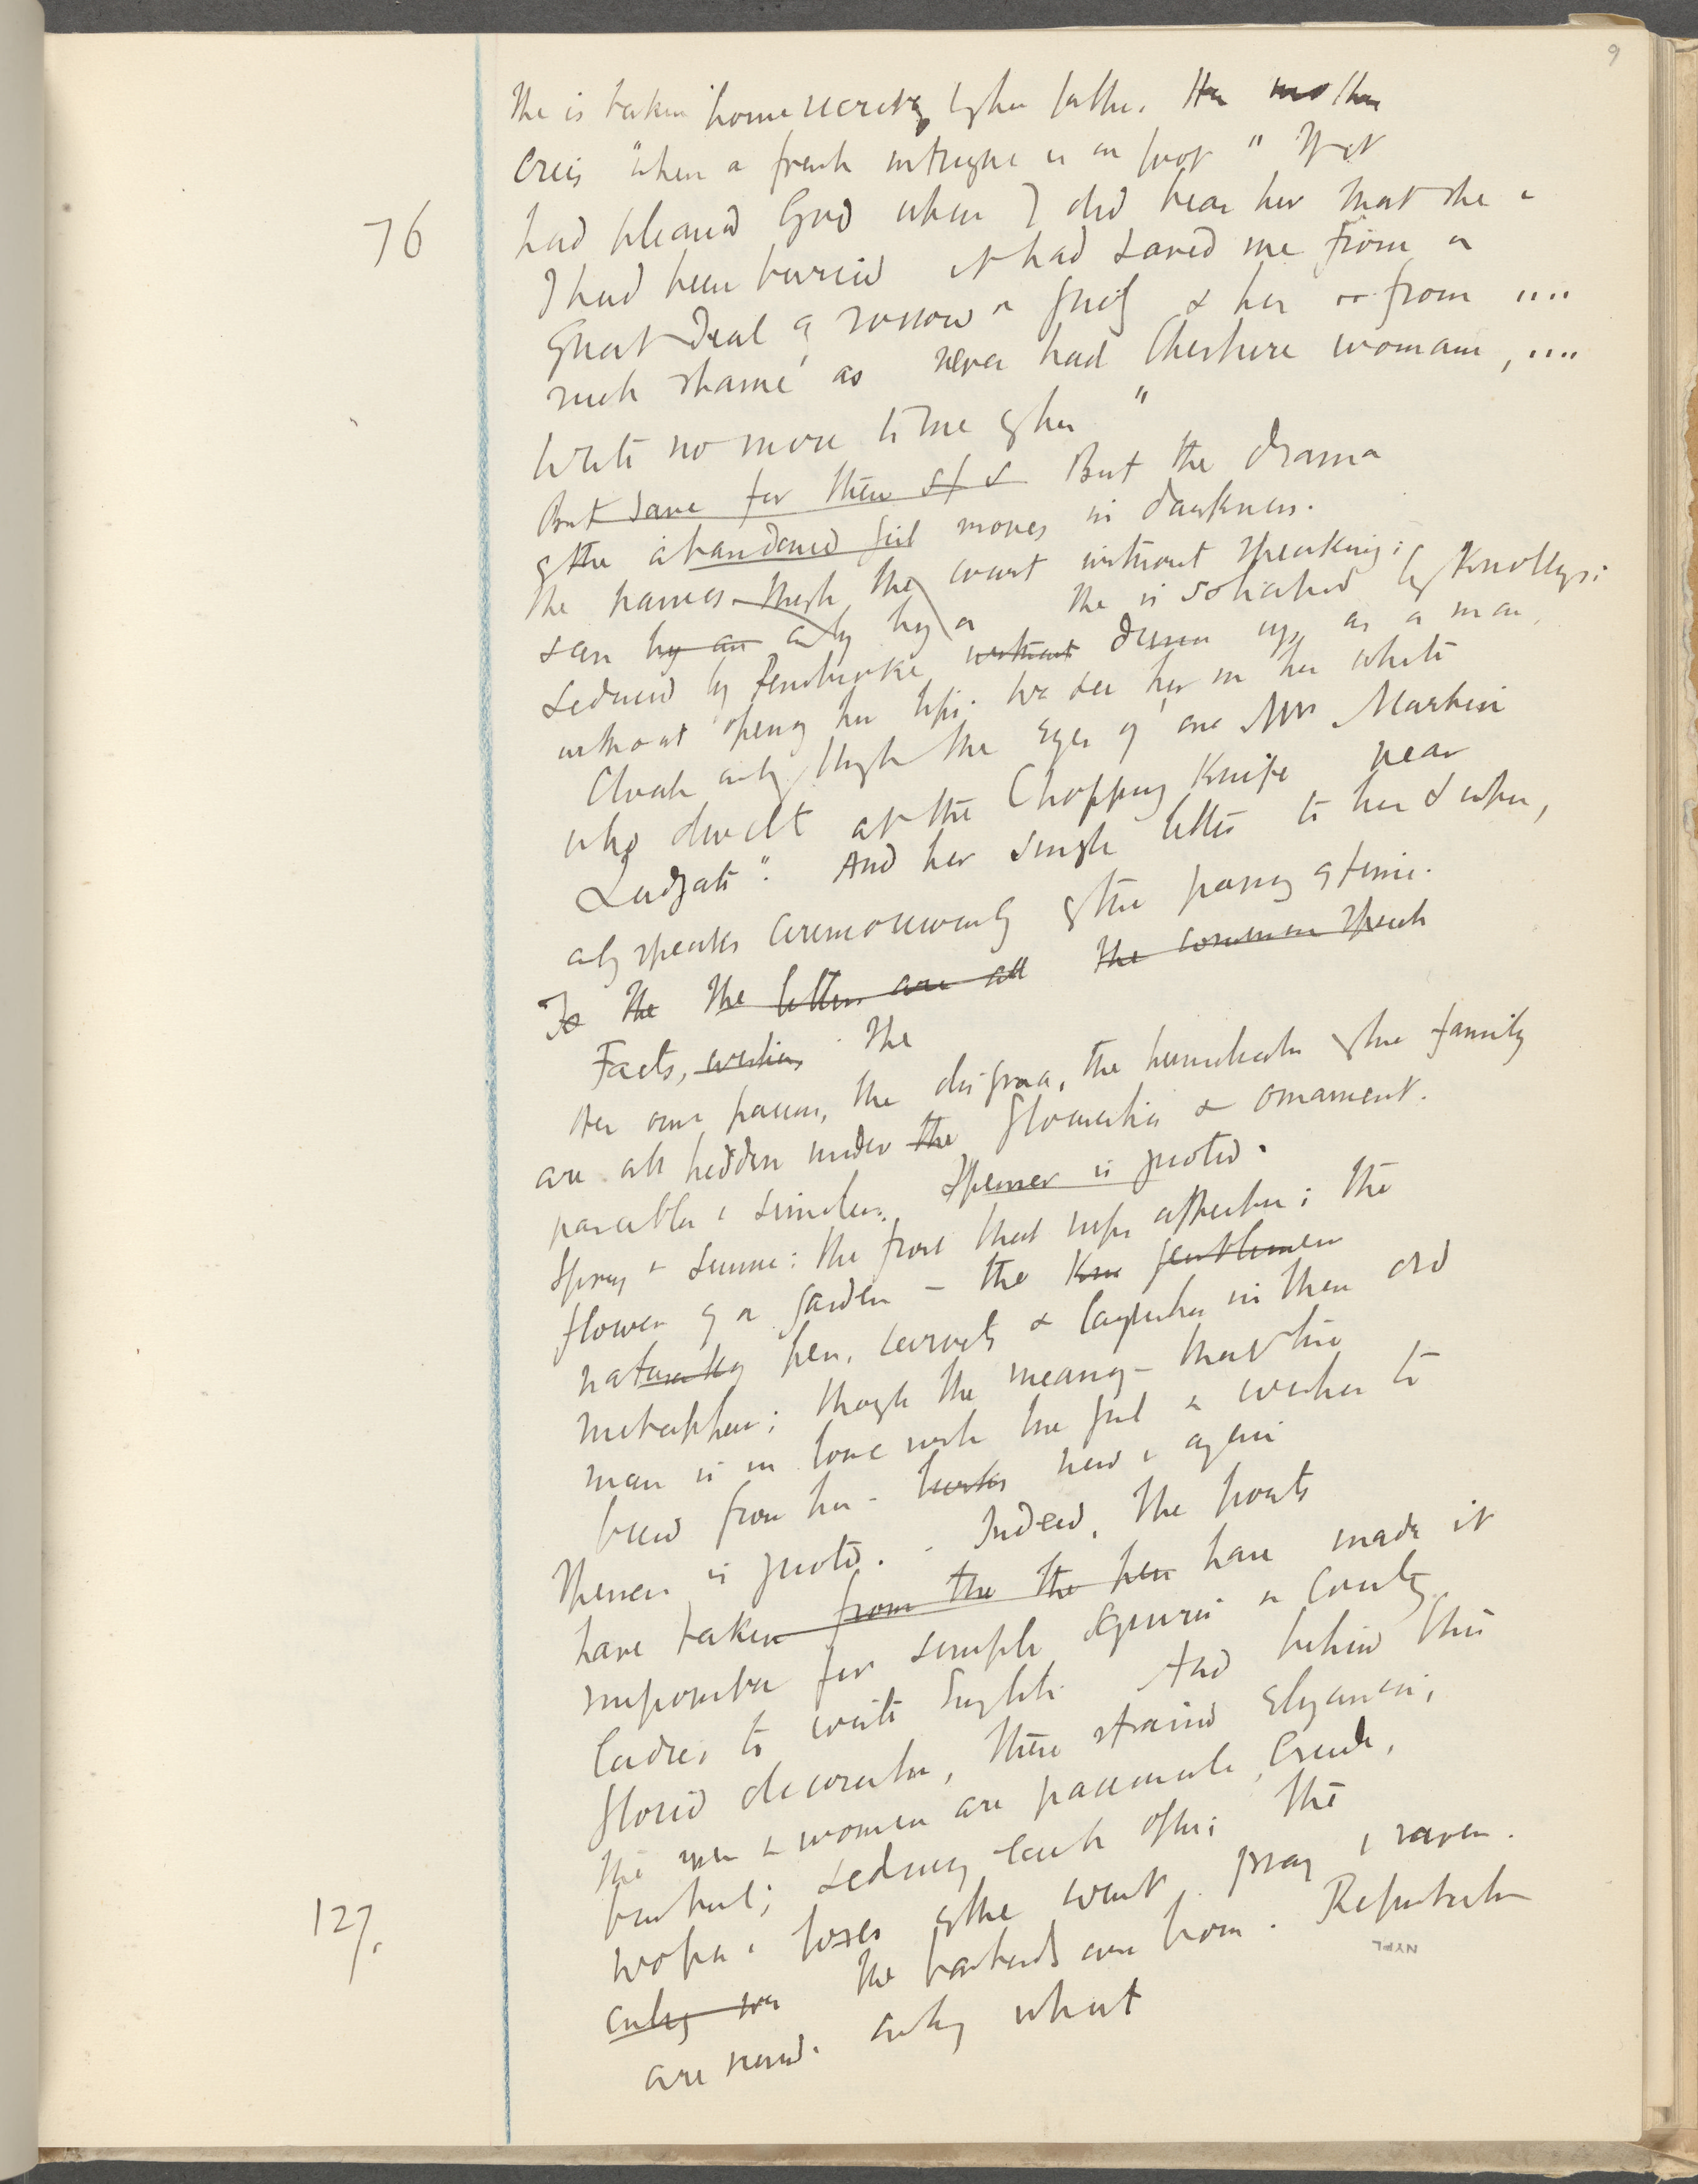 9
She is taken home secretly by her father. Her mother
cries "when a fresh intrigue is on foot" "If it
76
had pleased God when I did bear her that she &
I had been buried it had saved me from a
great deal of sorrow & grief & her from ....
such shame as never had Cheshire woman, ....
write no more to me of her"
But save for these But the drama
of the abandoned girl moves in darkness.
She passes through the court without speaking:
save by an only by a She is solicited by Knollys;
seduced by Pembroke without dressed up as a man,
without opening her lips. We see her in her white
Cloak only through the eyes of one Mrs Martin
who dwelt at the Chopping Knife near
Ludgate". And her single letter to her
only speaks ceremoniously of the passing of time.
To The The letters are all the common speech
Facts, The
Her own passion, the disgrace, the humiliation of the family
are all hidden under the flourishes & ornament.
parables & similes. Spenser is quoted.
Spring & summer: the frost that nips affection; the
flower of a garden – the gentlemen
naturally pen, revives & languishes in their old
metaphors; though the meaning – that this
man is in love with the girl & wishes to
breed from her – bursts now & again
Spenser is quoted. Indeed, the poets
have taken from the the pen have made it
impossible for simple squires & County
ladies to write English. And behind this
florid decoration, these strained elegancies,
the men & women are passionate, crude,
brutal; seducing each other; the
127.
wolves & foxes of the court prey & raven.
only the bastards are born. Reputations
are ruined. only what
NYPL